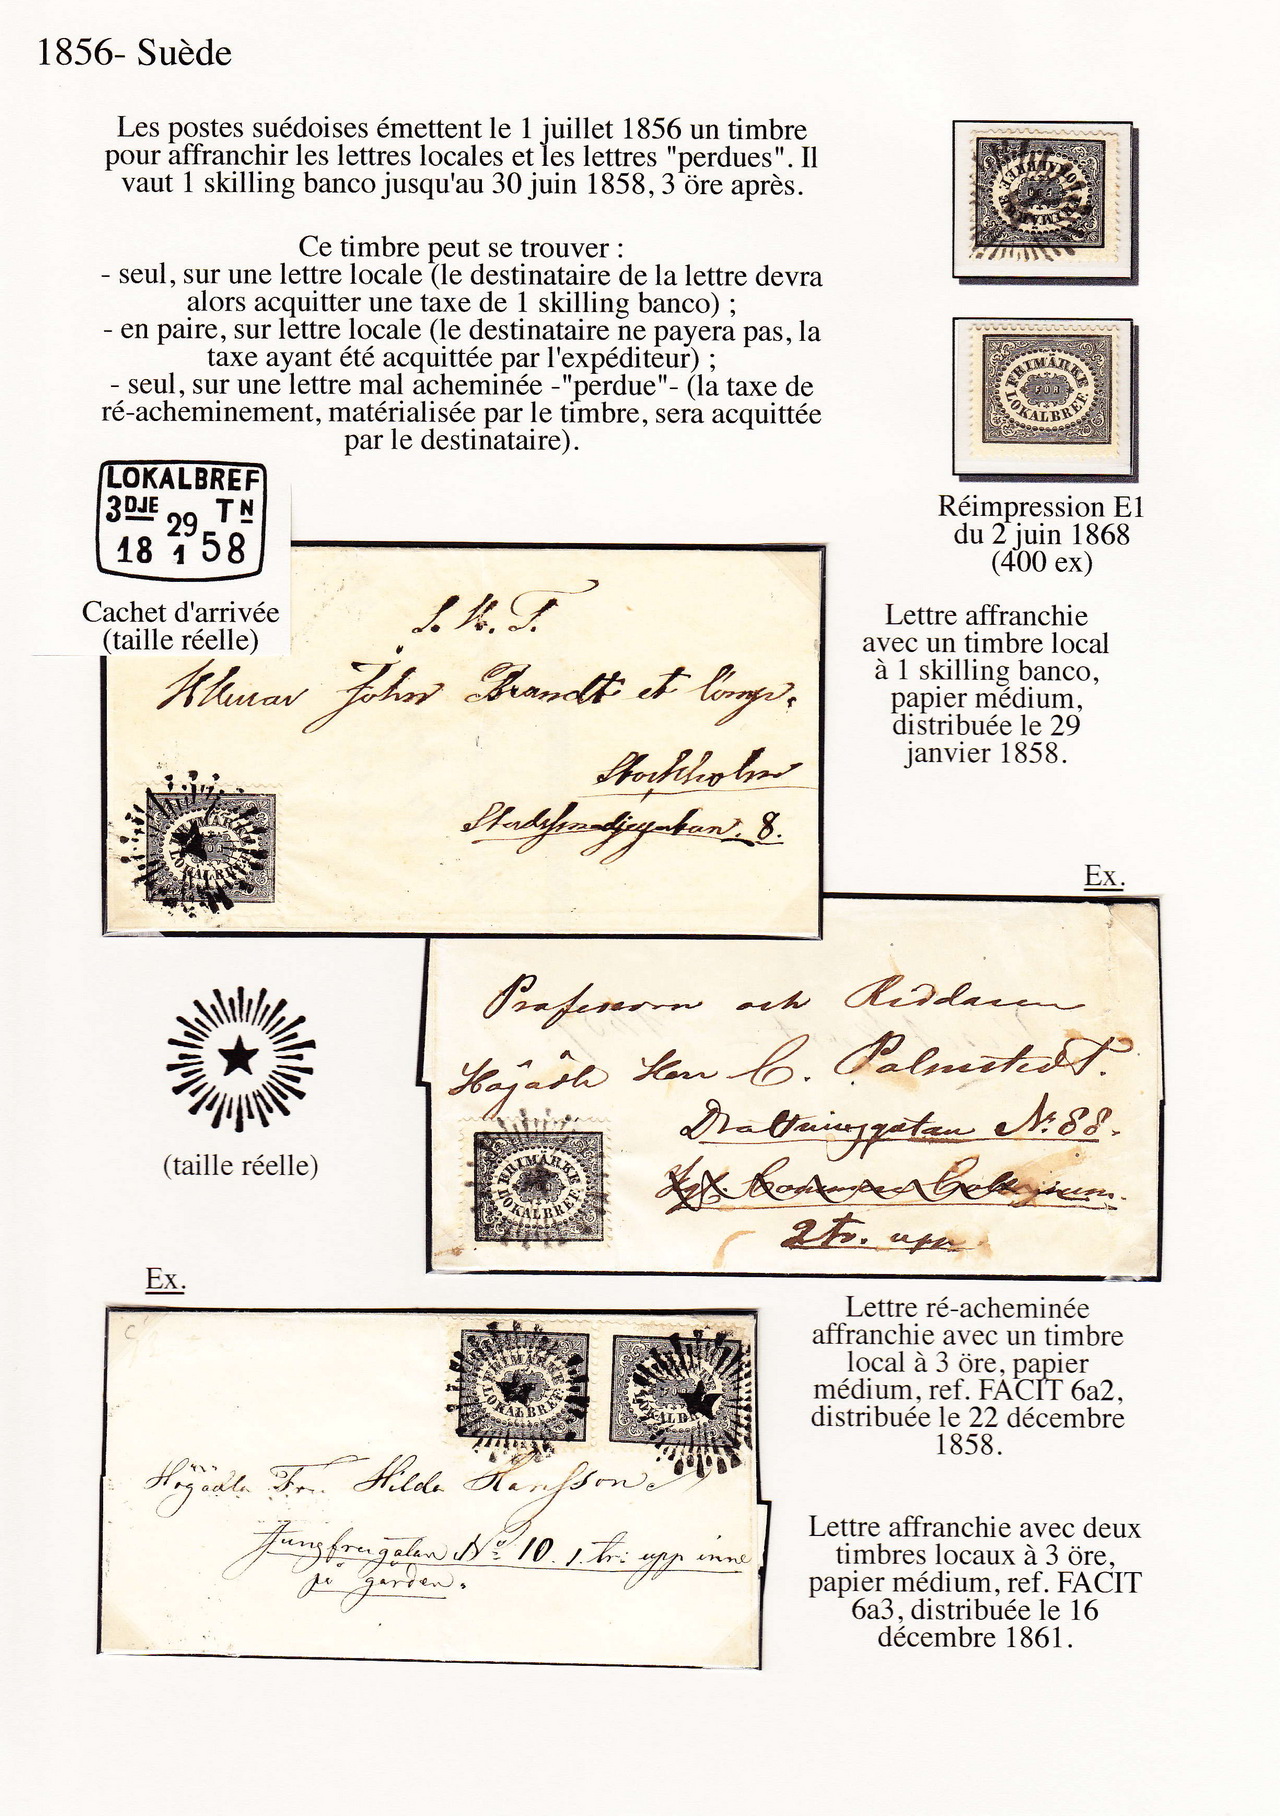 1856- Suède
Les postes suédoises émettent le 1 juillet 1856 un timbre
pour affranchir les lettres locales et les lettres "perdues". Il
vaut 1 skilling banco jusqu'au 30 juin 1858, 3 öre après.
Ce timbre peut se trouver :
- seul, sur une lettre locale (le destinataire de la lettre devra
alors acquitter une taxe de 1 skilling banco) ;
- en paire, sur lettre locale (le destinataire ne payera pas, la
taxe ayant été acquittée par l'expéditeur) ;
- seul, sur une lettre mal acheminée -"perdue"- (la taxe de
ré-acheminement, matérialisée par le timbre, sera acquittée
par le destinataire).
FRIMÄRKE
FÖR
LOKALBREF
FRIMÄRKE
FÖR
LOKALBREF
Réimpression E1
du 2 juin 1868
(400 ex)
LOKALBREF
3DJE 29 TN
18 1 58
Cachet d'arrivée
(taille réelle)
Lettre affranchie
avec un timbre local
à 1 skilling banco,
papier médium,
distribuée le 29
janvier 1858.
John Brandt et Comp.
Stockholm
8.
FRIMÄRKE
FÖR
LOKALBREF
Ex.
(taille réelle)
Professorn och Riddaren
Högädle Herr C. Palmstedt.
Drottninggatan No: 88.
2 tr. upp
FRIMÄRKE
LOKALBREF
Lettre ré-acheminée
affranchie avec un timbre
local à 3 öre, papier
médium, ref. FACIT 6a2,
distribuée le 22 décembre
1858.
Ex.
FRIMÄRKE
LOKALBREF
FÖR
LOKALBR
Högädla Fr. Hilda Hansson
Jungfrugatan No 10. 1. tr: upp inne
på gården.
Lettre affranchie avec deux
timbres locaux à 3 öre,
papier médium, ref. FACIT
6a3, distribuée le 16
décembre 1861.